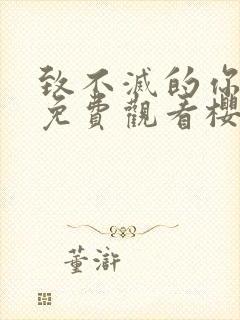 致不滅的你
免費觀看櫻
董滸